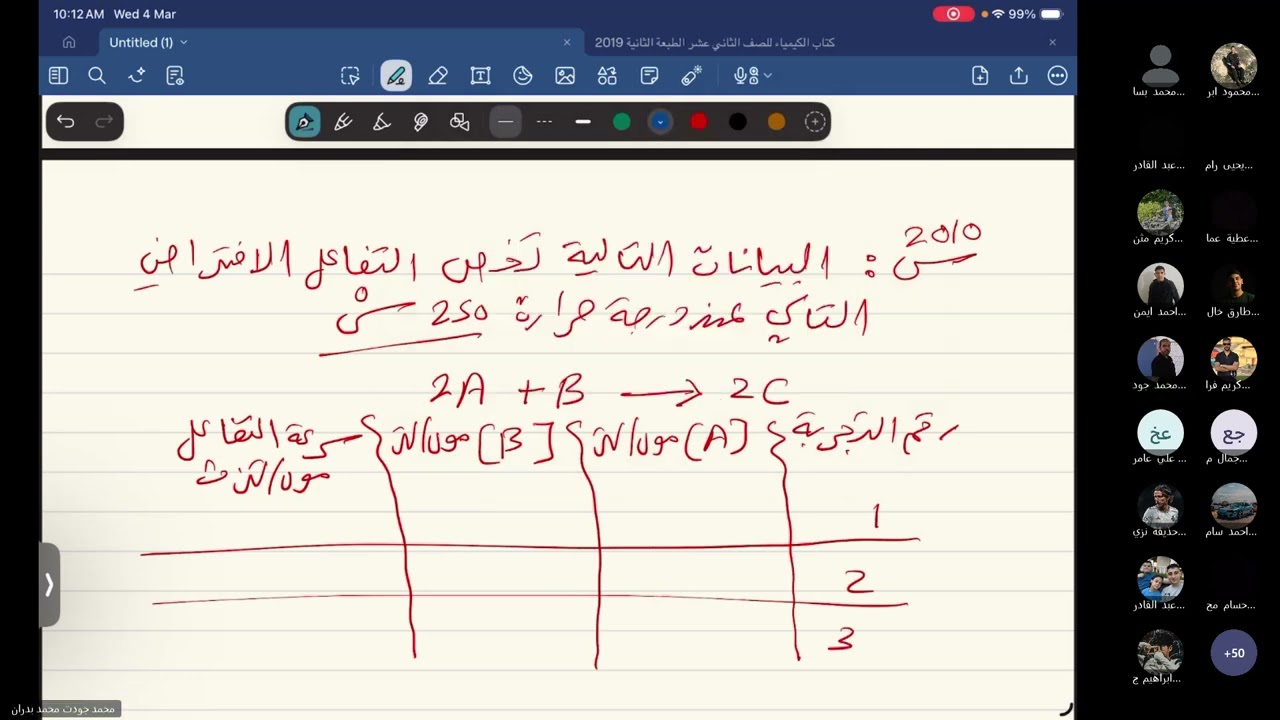 10:12 AM Wed 4 Mar
99%
Untitled (1)
كتاب الكيمياء للصف الثاني عشر الطبعة الثانية 2019
2010
س : البيانات التالية تخص التفاعل الافتراضي
التالي عند درجة حرارة 250 °س
2A + B → 2C
رقم التجربة [A] مول/لتر [B] مول/لتر سرعة التفاعل
مول/لتر.ث
1
2
3
محمد جودت محمد بدران
محمد بسا...
محمود ابر...
عبد القادر...
يحيى رام...
كريم مثن...
عطية عما...
احمد ايمن...
طارق خال...
محمد جود...
كريم فرا...
عخ
جع
علي عامر...
جمال م...
حذيفة نزي...
احمد سام...
عبد القادر...
حسام مح...
ابراهيم ج...
+50